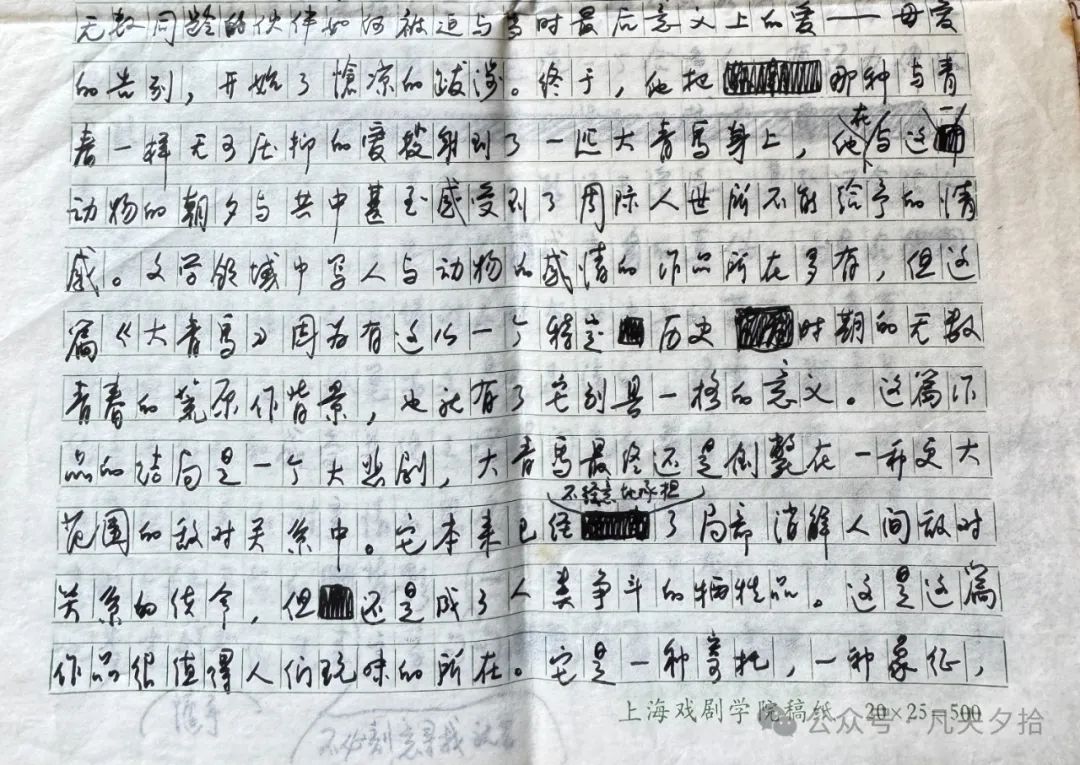 无数同龄的伙伴如何被迫与当时最后意义上的爱——母爱
的告别，开始了怆凉的跋涉。终于，他把那种与青
春一样无可压抑的爱投射到了一匹大青马身上，他在与这一
动物的朝夕与共中甚至感受到了周际人世所不能给予的情
感。文学领域中写人与动物的感情的作品所在多有，但这
篇《大青马》因为有这么一个特定历史时期的无数
青春的荒原作背景，也就有了它别具一格的意义。这篇作
品的结局是一个大悲剧，大青马最终还是倒毙在一种更大
不经意地承担
范围的敌对关系中。它本来已经了局部消解人间敌对
关系的使命，但还是成了人类争斗的牺牲品。这是这篇
作品很值得人们玩味的所在。它是一种寄托，一种象征，
上海戏剧学院稿纸 20×25=500
公众号·凡夫夕拾